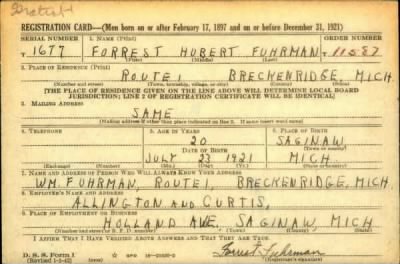 Gratiot
REGISTRATION CARD—(Men born on or after February 17, 1897 and on or before December 31, 1921)
SERIAL NUMBER 1. NAME (Print) ORDER NUMBER
T 1677 FORREST HUBERT FUHRMAN T 11587
(First) (Middle) (Last)
2. PLACE OF RESIDENCE (Print)
ROUTE 1 BRECKENRIDGE, MICH.
(Number and street) (Town, township, village, or city) (County) (State)
[THE PLACE OF RESIDENCE GIVEN ON THE LINE ABOVE WILL DETERMINE LOCAL BOARD
JURISDICTION; LINE 2 OF REGISTRATION CERTIFICATE WILL BE IDENTICAL]
3. MAILING ADDRESS
SAME
[Mailing address if other than place indicated on line 2. If same insert word same]
4. TELEPHONE 5. AGE IN YEARS 6. PLACE OF BIRTH
20 SAGINAW
DATE OF BIRTH (Town or county)
JULY 23 1921 MICH
(Exchange) (Number) (Mo.) (Day) (Yr.) (State or country)
7. NAME AND ADDRESS OF PERSON WHO WILL ALWAYS KNOW YOUR ADDRESS
WM. FUHRMAN, ROUTE 1, BRECKENRIDGE, MICH.
8. EMPLOYER'S NAME AND ADDRESS
ALLINGTON AND CURTIS,
9. PLACE OF EMPLOYMENT OR BUSINESS
HOLLAND AVE, SAGINAW, MICH
(Number and street or R. F. D. number) (Town) (County) (State)
I AFFIRM THAT I HAVE VERIFIED ABOVE ANSWERS AND THAT THEY ARE TRUE.
D. S. S. Form 1 GPO Forrest Fuhrman
(Revised 1-1-42) (over) (Registrant's signature)